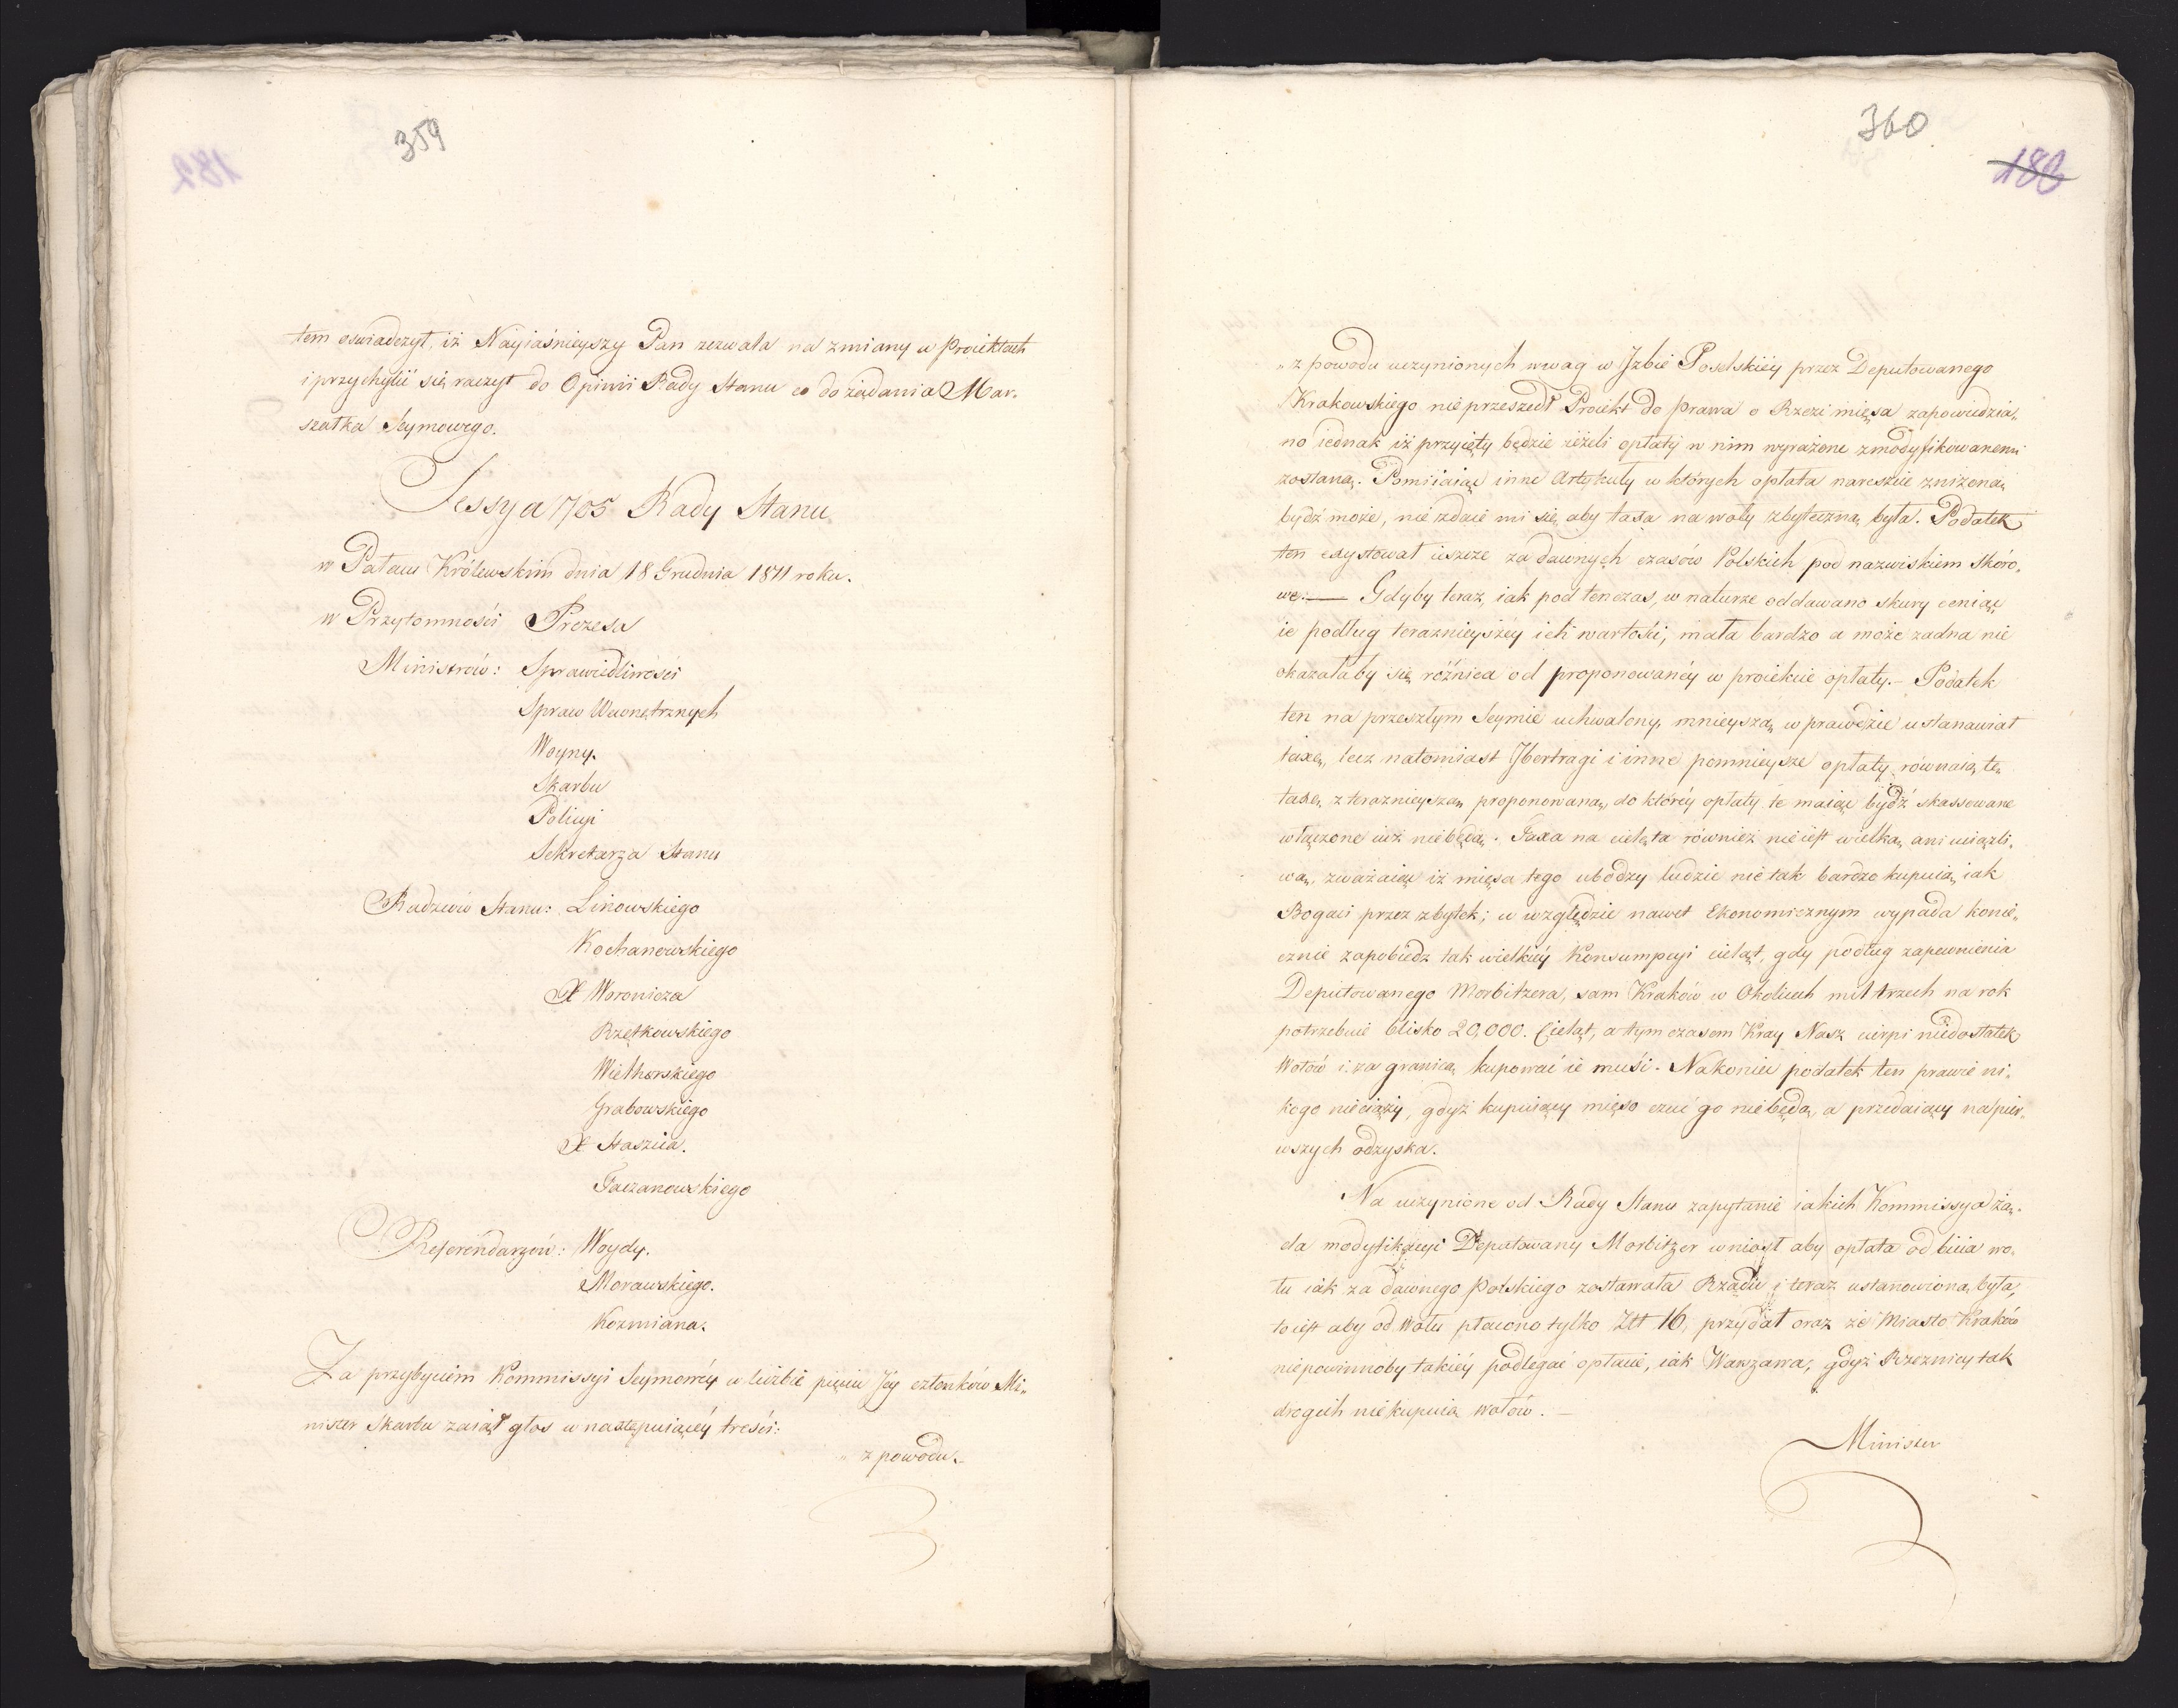 359
182
tem oswiadczył, iż Nayiaśnieyszy Pan zezwala na zmiany w Proiektach
i przychylić się raczył do Opinii Rady Stanu co do żądania Mar-
szałka Seymowego.
Sessya 1705 Rady Stanu
w Pałacu Królewskim dnia 18 Grudnia 1811 roku.
w Przytomności Prezesa
Ministrów: Sprawiedliwości
Spraw Wewnętrznych
Woyny.
Skarbu
Policyi
Sekretarza Stanu
Radzców Stanu: Linowskiego
Kochanowskiego
X Woronicza
Rzętkowskiego
Wielhorskiego
Grabowskiego
X Staszica.
Taczanowskiego
Referendarzów: Woydy.
Morawskiego.
Kozmiana.
Za przybyciem Kommissyi Seymowéy w liczbie pięciu Jey członków Mi-
nister Skarbu zaiął głos w następuiącéy treści:
„z powodu.
360
188
„z powodu uczynionych uwag w Jzbie Poselskiéy przez Deputowanego
Krakowskiego nieprzeszedł Proiekt do prawa o Rzezi mięsa zapowiedzia-
no iednak iż przyięty będzie ieżeli opłaty w nim wyrażone zmodyfikowanemi
zostaną. Pomiiaiąc inne Artykuły w których opłata nareszcie zniżoną
bydź może, nie zdaie mi się aby taxa na woły zbyteczną była. Podatek
ten exystował ieszcze za dawnych czasów Polskich pod nazwiskiem Skóro-
we. — Gdyby teraz, iak pod tenczas, w naturze oddawano skury ceniąc
ie podług teraznieyszéy ich wartości, mała bardzo a może zadna nie
okazałaby się różnica od proponowanéy w proiekcie opłaty. – Podatek
ten na przeszłym Seymie uchwalony, mnieyszą wprawdzie ustanawiał
taxę, lecz natomiast Jbertragi i inne pomnieysze opłaty równaią tę
taxę z teraznieyszą proponowaną, do któréy opłaty te maiąc bydź skassowane
włączone iuż niebędą. Taxa na cielęta również nieiest wielką ani uciążli-
wą, zważaiąc iż mięsa tego ubodzy ludzie nie tak bardzo kupuią iak
Bogaci przez zbytek; w względzie nawet Ekonomicznym wypada konie-
cznie zapobiedz tak wielkiéy Konsumpcyi cieląt, gdy podług zapewnienia
Deputowanego Morbitzera, sam Kraków w Okolicach mil trzech na rok
potrzebuie blisko 20,000. Cieląt, a tym czasem Kray Nasz cierpi niedostatek
Wołów i za granicą kupować ie musi. Nakoniec podatek ten prawie ni-
kogo nieciąży, gdyż kupuiący mięso czuć go niebędą, a przedaiący na pier-
wszych odzyska.
Na uczynione od Rady Stanu zapytanie iakich Kommissya żą-
da modyfikacyi Deputowany Morbitzer wniosł aby opłata od bicia wo-
łu iak za dawnego Polskiego zostawała Rządu i teraz ustanowioną była,
to iest aby od Wołu płacono tylko Złł 16, przydał oraz że Miasto Kraków
niepowinnoby takiéy podlegać opłacie, iak Warszawa, gdyż Rzeznicy tak
drogich niekupuią wołów. —
Minister